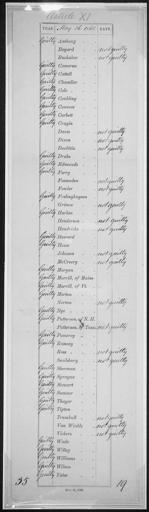 Article XI
YEAS. May 16, 1868. NAYS.
Guilty Anthony
Bayard not guilty
Buckalew not guilty
Guilty Cameron
Guilty Cattell
Guilty Chandler
Guilty Cole
Guilty Conkling
Guilty Conness
Guilty Corbett
Guilty Cragin
Davis not guilty
Dixon not guilty
Doolittle not guilty
Guilty Drake
Guilty Edmunds
Guilty Ferry
Fessenden not guilty
Fowler not guilty
Guilty Frelinghuysen
Grimes not guilty
Guilty Harlan
Henderson not guilty
Hendricks not guilty
Guilty Howard
Guilty Howe
Johnson not guilty
McCreery not guilty
Guilty Morgan
Guilty Morrill, of Maine
Guilty Morrill, of Vt.
Guilty Morton
Norton not guilty
Guilty Nye
Guilty Patterson, of N. H.
Patterson, of Tenn. not guilty
Guilty Pomeroy
Guilty Ramsey
Ross not guilty
Saulsbury not guilty
Guilty Sherman
Guilty Sprague
Guilty Stewart
Guilty Sumner
Guilty Thayer
Guilty Tipton
Trumbull not guilty
Van Winkle not guilty
Vickers not guilty
Guilty Wade
Guilty Willey
Guilty Williams
Guilty Wilson
Guilty Yates
35 19